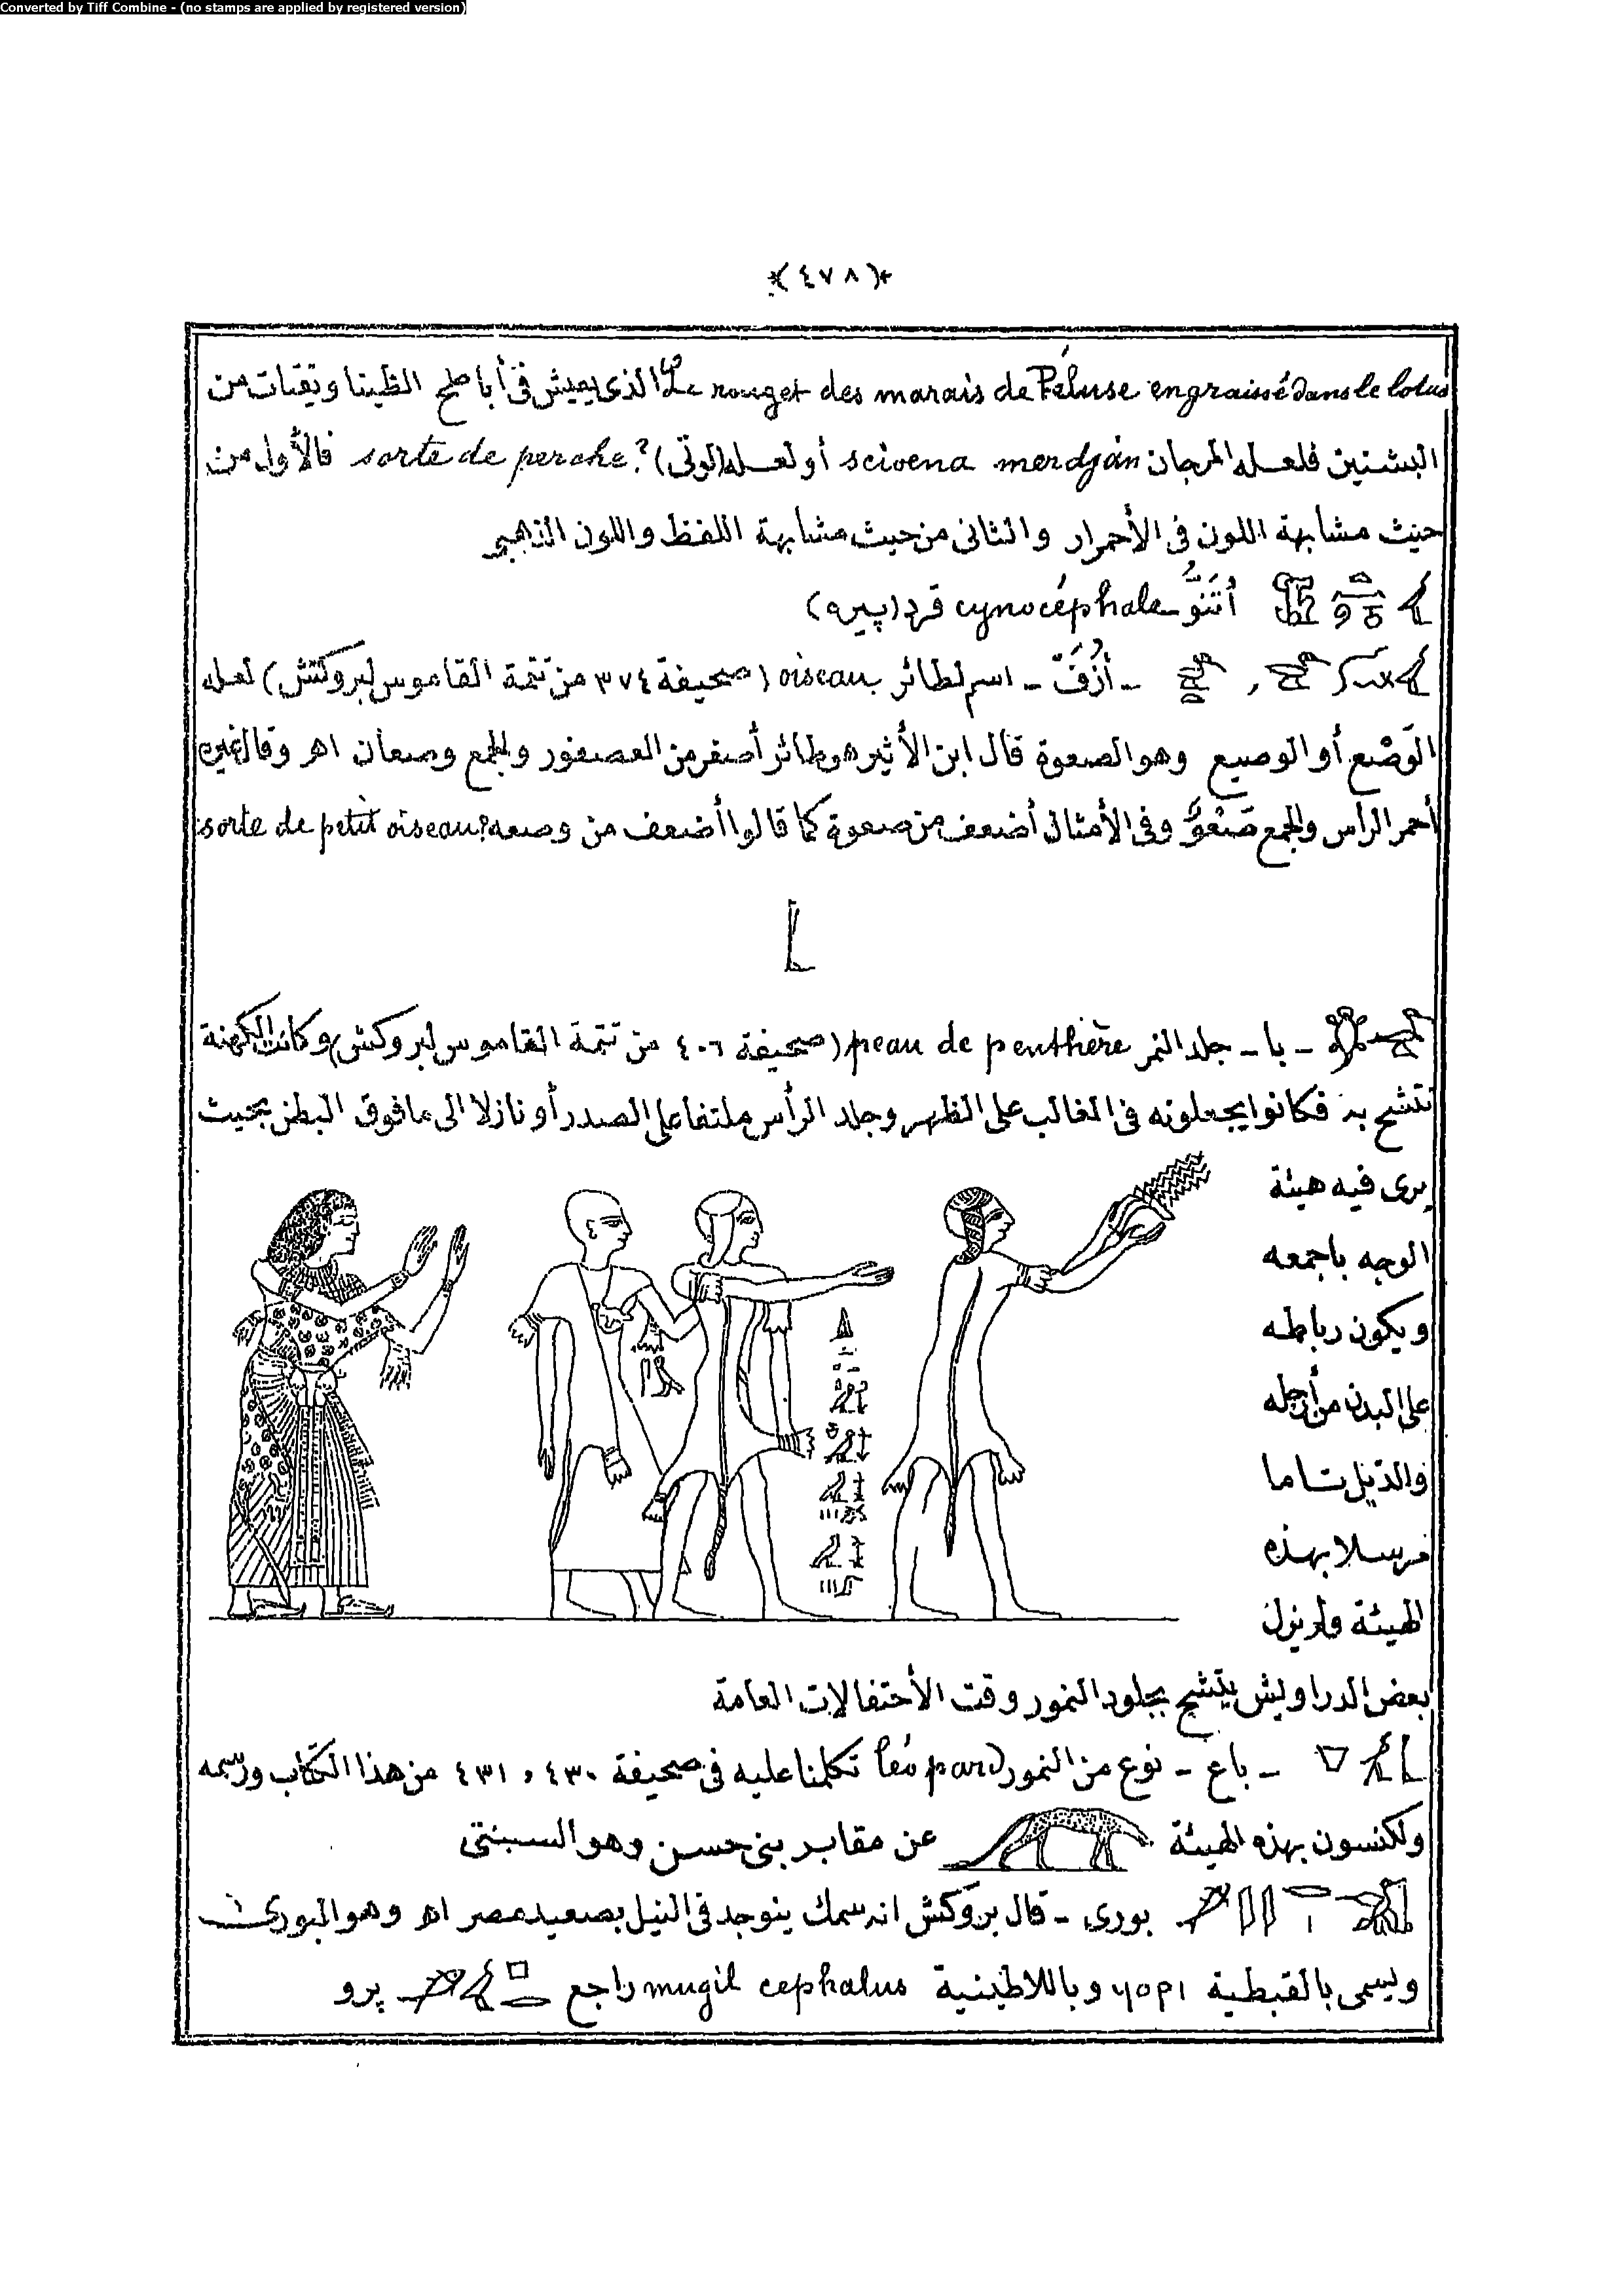 Converted by Tiff Combine - (no stamps are applied by registered version)
*(٤٧٨)*
Le rouget des marais de Péluse engraissé dans le lotus الذى يعيش فى أباطح الظينا ويقتات من
البشنين فلعله المرجان scivena merdján أو لعله (الوتى) ?sorte de perche فالأول من
حيث مشابهة اللون فى الأحمرار والثانى من حيث مشابهة اللفظ واللون الذهبى
أتَنُو cynocéphale قرد (پيره)
- أزُفّ - اسم لطائر oiseau (صحيفة ٣٧٤ من تتمة القاموس لبروكتش) لعله
الوَصْع أو الوصيع وهو الصعوة قال ابن الأثير هو طائر أصغر من العصفور والجمع وصعان اهر وقال غيره
أحمر الرأس والجمع صَعْوٌ وفى الأمثال أضعف من صعوة كما قالوا أضعف من وصعه ?sorte de petit oiseau
- با - جلد النمر peau de penthère (صحيفة ٤٠٦ من تتمة القاموس لبروكش) وكانت الكهنة
تتشح به فكانوا يجعلونه فى الغالب على الظهر وجلد الرأس ملتفا على الصدر أو نازلا الى ما فوق البطن بحيث
يرى فيه هيئة
الوجه بأجمعه
ويكون رباطه
على البدن من أرجله
والذيل تاما
مرسلا بهذه
الهيئة ولم يزل
بعض الدراويش يتشح بجلود النمور وقت الأحتفالات العامة
- باع - نوع من النمور léopard تكلمنا عليه فى صحيفة ٤٣٠ و ٤٣١ من هذا الكتاب ورسمه
ولكنسون بهذه الهيئة عن مقابر بنى حسن وهو السبنتى
بورى - قال بروكش انه سمك ينوجد فى النيل بصعيد مصر اهر وهو البورى
ويسمى بالقبطية ϥορι وباللاطينية mugil cephalus راجع پرو